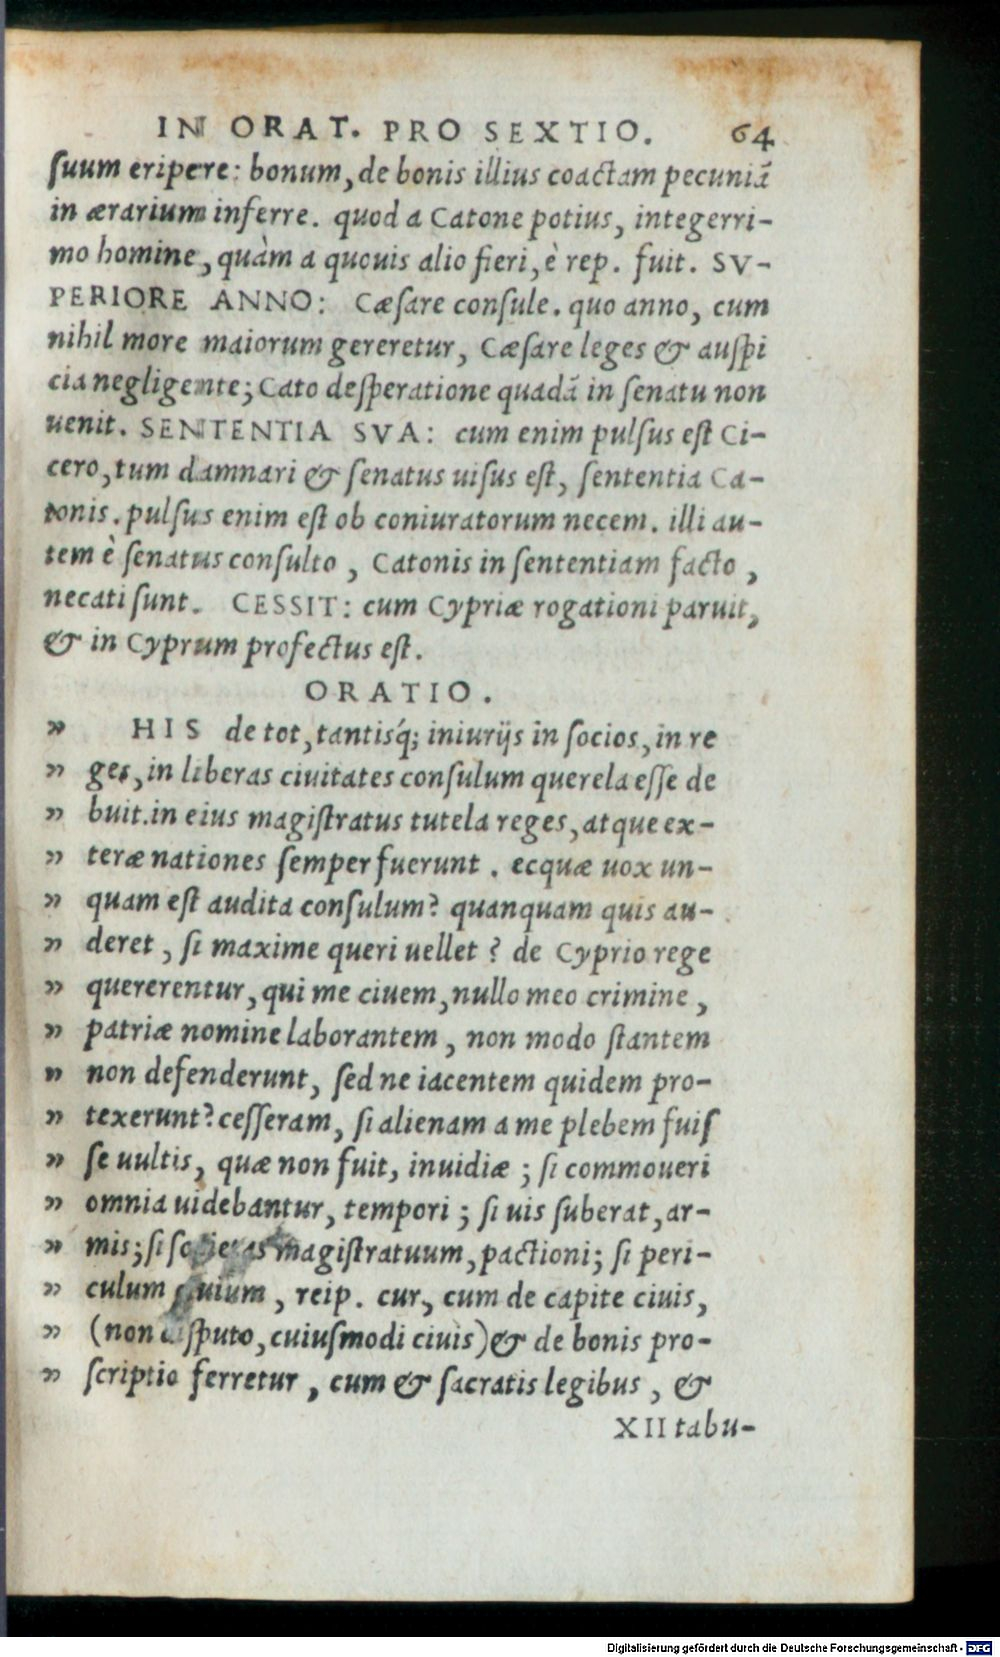 IN ORAT. PRO SEXTIO. 64
suum eripere: bonum, de bonis illius coactam pecuniã
in ærarium inferre. quod a Catone potius, integerri-
mo homine, quàm a quouis alio fieri, è rep. fuit. SV-
PERIORE ANNO: Cæsare consule. quo anno, cum
nihil more maiorum gereretur, Cæsare leges & auspi
cia negligente; Cato desperatione quadã in senatu non
uenit. SENTENTIA SVA: cum enim pulsus est Ci-
cero, tum damnari & senatus uisus est, sententia Ca-
tonis. pulsus enim est ob coniuratorum necem. illi au-
tem è senatus consulto, Catonis in sententiam facto,
necati sunt. CESSIT: cum Cypriæ rogationi paruit,
& in Cyprum profectus est.
ORATIO.
” HIS de tot, tantisq́; iniurijs in socios, in re
” ges, in liberas ciuitates consulum querela esse de
” buit. in eius magistratus tutela reges, atque ex-
” teræ nationes semper fuerunt. ecquæ uox un-
” quam est audita consulum? quanquam quis au-
” deret, si maxime queri uellet? de Cyprio rege
” quererentur, qui me ciuem, nullo meo crimine,
” patriæ nomine laborantem, non modo stantem
” non defenderunt, sed ne iacentem quidem pro-
” texerunt? cesseram, si alienam a me plebem fuis
” se uultis, quæ non fuit, inuidiæ; si commoueri
” omnia uidebantur, tempori; si uis suberat, ar-
” mis; si societas magistratuum, pactioni; si peri-
” culum ciuium, reip. cur, cum de capite ciuis,
” (non disputo, cuiusmodi ciuis) & de bonis pro-
” scriptio ferretur, cum & sacratis legibus, &
XII tabu-
Digitalisierung gefördert durch die Deutsche Forschungsgemeinschaft - DFG